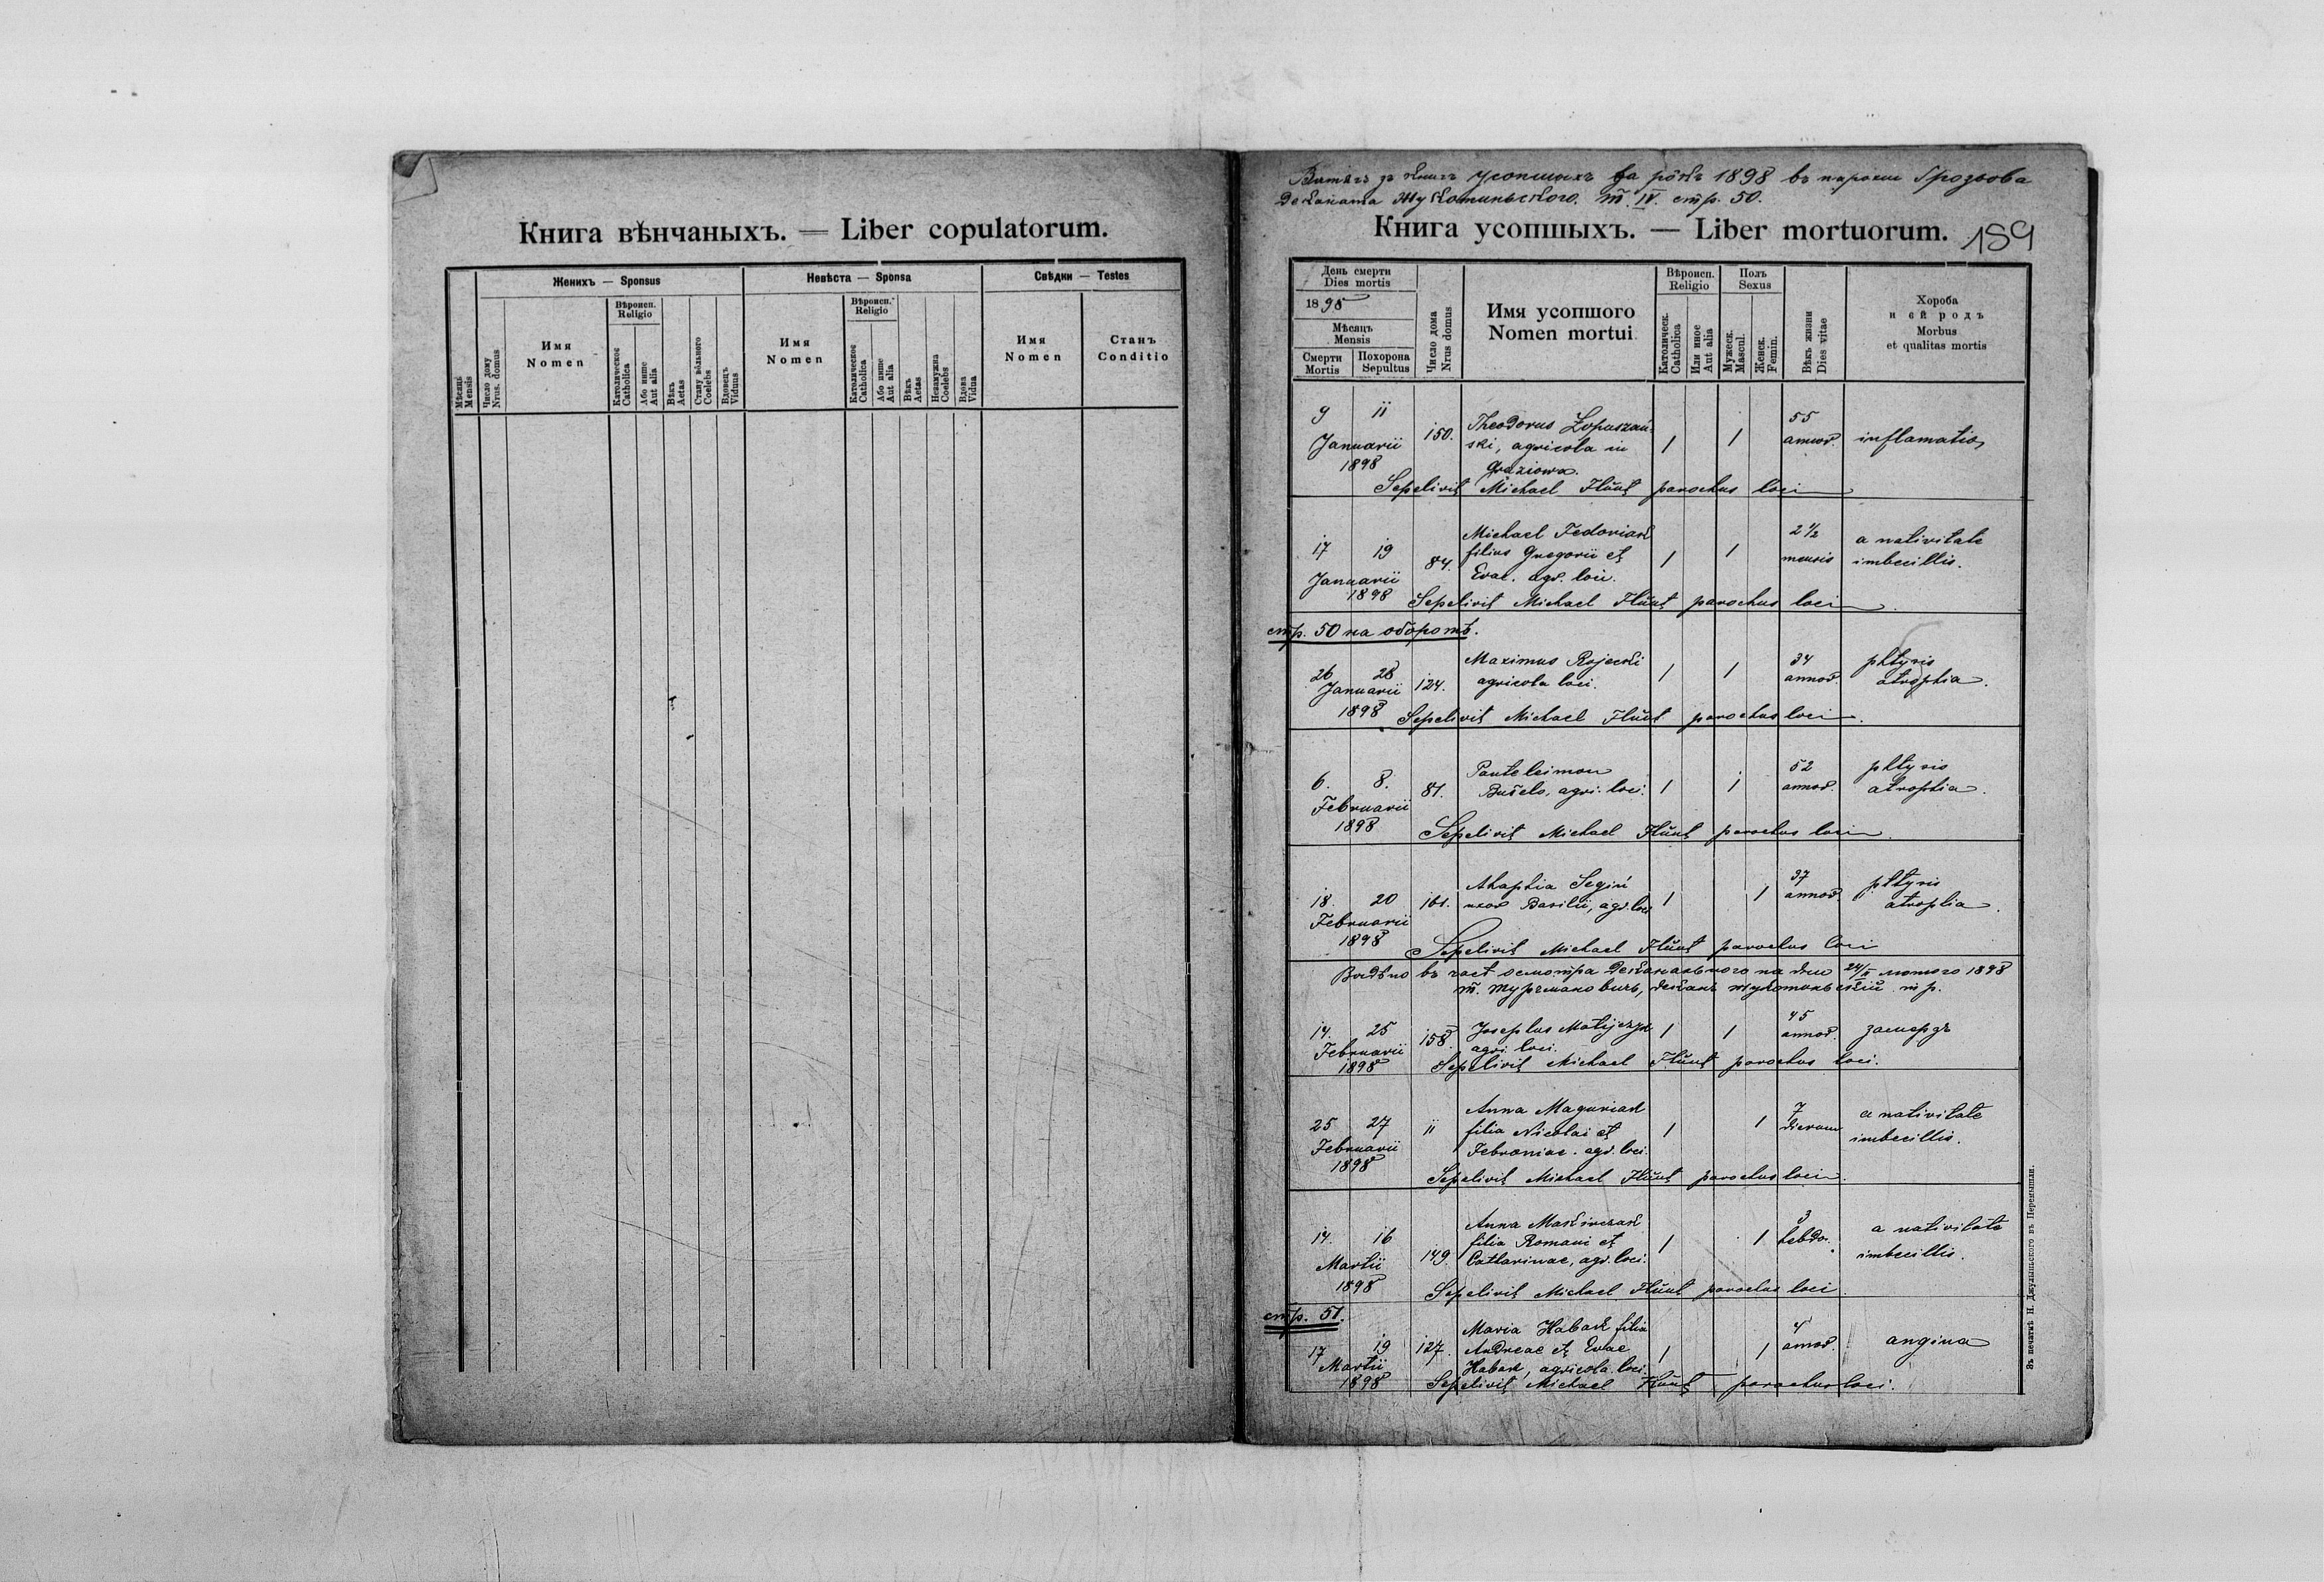 Книга вѣнчаныхъ. — Liber copulatorum.
Мѣсяць
Mensis
Число дому
Nrus. domus
Женихъ — Sponsus
Имя
Nomen
Вѣроисп.
Religio
Католическое
Catholica
Або инше
Aut alia
Вѣкъ
Aetas
Стану вольного
Coelebs
Вдовецъ
Viduus
Невѣста — Sponsa
Имя
Nomen
Вѣроисп.
Religio
Католическое
Catholica
Або инше
Aut alia
Вѣкъ
Aetas
Незамужна
Coelebs
Вдова
Vidua
Свѣдки — Testes
Имя
Nomen
Станъ
Conditio
Витягъ зъ книгъ усопшихъ за рôкъ 1898 въ парохіи Грозьова
Деканата Жукотинського. т. IV. стр. 50.
Книга усопшыхъ. — Liber mortuorum. 159
День смерти
Dies mortis
1898
Мѣсяцъ
Mensis
Смерти
Mortis
Похорона
Sepultus
Число дома
Nrus domus
Имя усопшого
Nomen mortui
Вѣроисп.
Religio
Католическ.
Catholica
Или иное
Aut alia
Полъ
Sexus
Мужеск.
Mascul.
Женск.
Femin.
Вѣкъ жизни
Dies vitae
Хороба
и єй родъ
Morbus
et qualitas mortis
9 11 Januarii 1898 150. Theodorus Łopuszań-
ski, agricola in
Groziowa. 1 1 55 annor. inflamatio
Sepelivit Michael Flunt parochus loci
17 19 Januarii 1898 84. Michael Fedoriak
filius Gregorii et
Evae. agr. loci. 1 1 2 1/2 mensis a nativitate
imbecillis.
Sepelivit Michael Flunt parochus loci.
стр. 50 на оборотѣ.
26 28 Januarii 1898 124. Maximus Rojecki
agricola loci. 1 1 34 annor. phtysis
atrophia.
Sepelivit Michael Flunt parochus loci.
6. 8. Februarii 1898 81. Panteleimon
agri. loci. 1 1 52 annor. phtysis
atrophia.
Sepelivit Michael Flunt parochus loci.
18. 20 Februarii 1898 161. Ahaphia Segin
uxor Basilii, agr. loci 1 1 37 annor. phtysis
atrophia.
Sepelivit Michael Flunt parochus loci
Видѣно въ часѣ осмотра деканального на дни 24/II лютого 1898
деканъ жукотинській m p.
14. 25 Februarii 1898 158. Josephus Matijczyk
agri. loci. 1 1 45 annor. замерзъ
Sepelivit Michael Flunt parochus loci.
25 27 Februarii 1898 11 Anna Maguriak
filia Nicolai et
Febroniae. agr. loci. 1 1 7 dierum a nativitate
imbecillis.
Sepelivit Michael Flunt parochus loci.
14. 16 Martii 1898 149. Anna
filia Romani et
Catharinae, agr. loci. 1 1 3 hebdo. a nativitate
imbecillis.
Sepelivit Michael Flunt parochus loci.
стр. 51.
17 19 Martii 1898 127. Maria Habak filia
Andreae et Evae
Habak, agricola loci. 1 1 4 annor. angina
Sepelivit Michael Flunt parochus loci.
Въ печатнѣ Н. Джулыньского въ Перемышли.